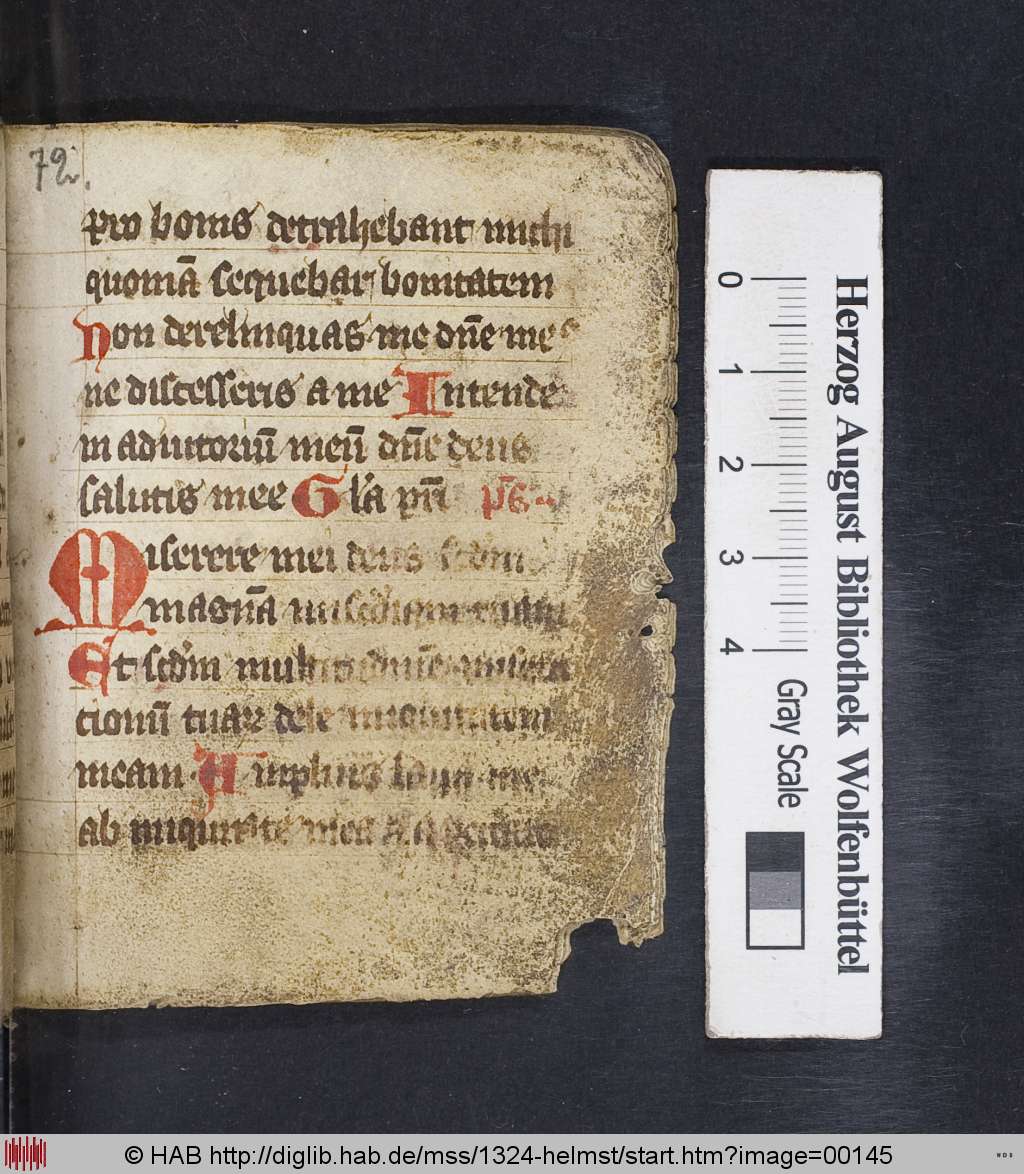 72.
pro bonis detrahebant michi
quoniā sequebar bonitatem
Non derelinquas me dn̄e me
ne discesseris a me Intende
in adiutoriū meū dn̄e deus
salutis mee Gl'a pr̄i p̄s
Miserere mei deus scd̄m
magnā
Et scd̄m
tionū tuaꝝ dele iniquitatem
meam Amplius laua me
ab iniquitate mea
0 1 2 3 4
Gray Scale
Herzog August Bibliothek Wolfenbüttel
© HAB http://diglib.hab.de/mss/1324-helmst/start.htm?image=00145